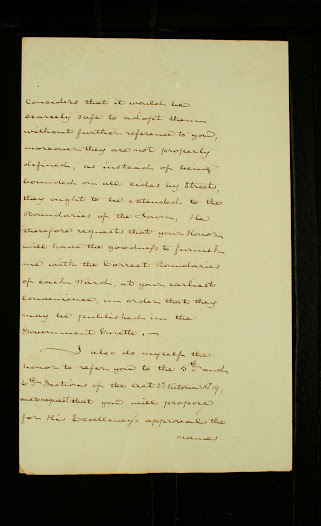 Considers that it would be
scarcely safe to adopt them
without further reference to you,
moreover they are not properly
defined, as instead of being
bounded on all sides by Streets,
they ought to be extended to the
Boundaries of the Town, He
therefore requests that your Honor
will have the goodness to furnish
me with the Correct Boundaries
of each Ward, at your earliest
convenience, in order that they
may be published in the
Government Gazette. —
I also do myself the
honor to refer you to the 5th and
6th Sections of the Act 3d Victoria No 19,
and to request that you will propose
for His Excellency's approval the
names